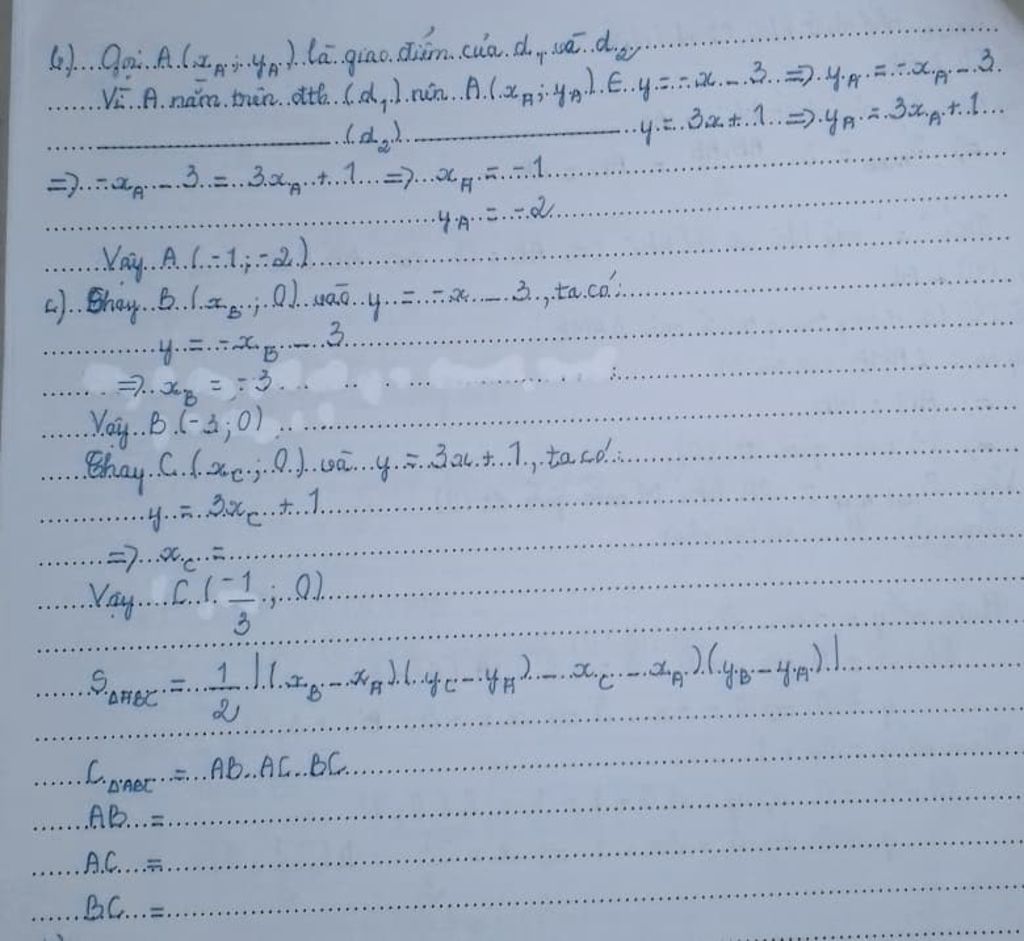 b) Gọi A (x_A; y_A) là giao điểm của d₁ và d₂
Vì A nằm trên đtb (d₁) nên A (x_A; y_A) ∈ y = -x - 3 => y_A = -x_A - 3
(d₂) y = 3x + 1 => y_A = 3x_A + 1
=> -x_A - 3 = 3x_A + 1 => x_A = -1
y_A = -2
Vậy A (-1; -2)
c) Thay B (x_B; 0) vào y = -x - 3, ta có:
y = -x_B - 3
=> x_B = -3
Vậy B (-3; 0)
Thay C (x_C; 0) và y = 3x + 1, ta có:
y = 3x_C + 1
=> x_C =
Vậy C (-1/3; 0)
S_ΔABC = 1/2 |(x_B - x_A)(y_C - y_A) - x_C - x_A)(y_B - y_A)|
C_ΔABC = AB . AC . BC
AB =
AC =
BC =